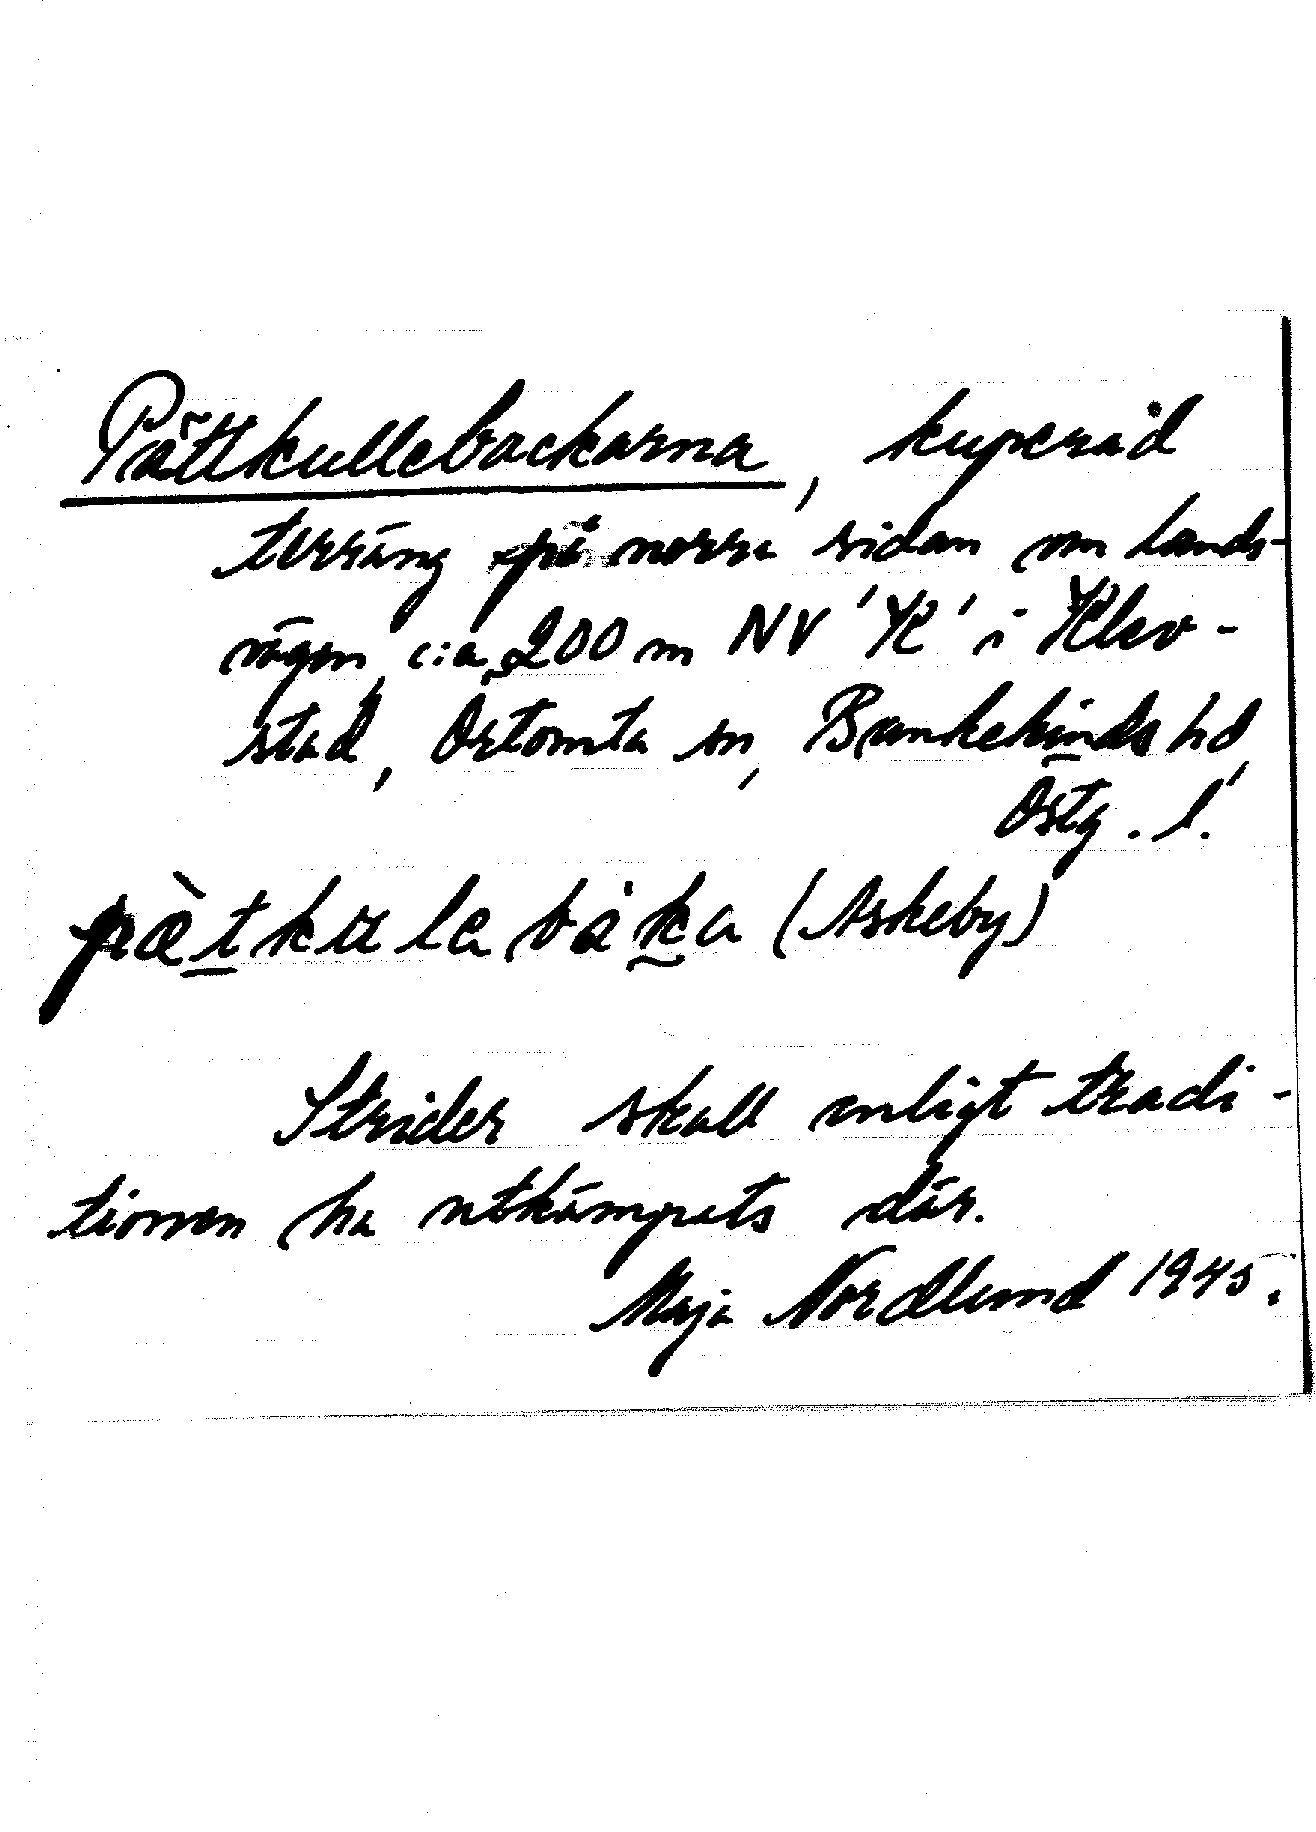 Pättkullebackarna, kuperad
terräng på norra sidan om lands-
vägen c:a 200 m NV 'K' i Klev-
stad, Örtomta sn, Bankekinds hd,
Östg. l.
pætkulabaka (Askeby)
Strider skall enligt tradi-
tionen ha utkämpats där.
Maja Nordlund 1945.